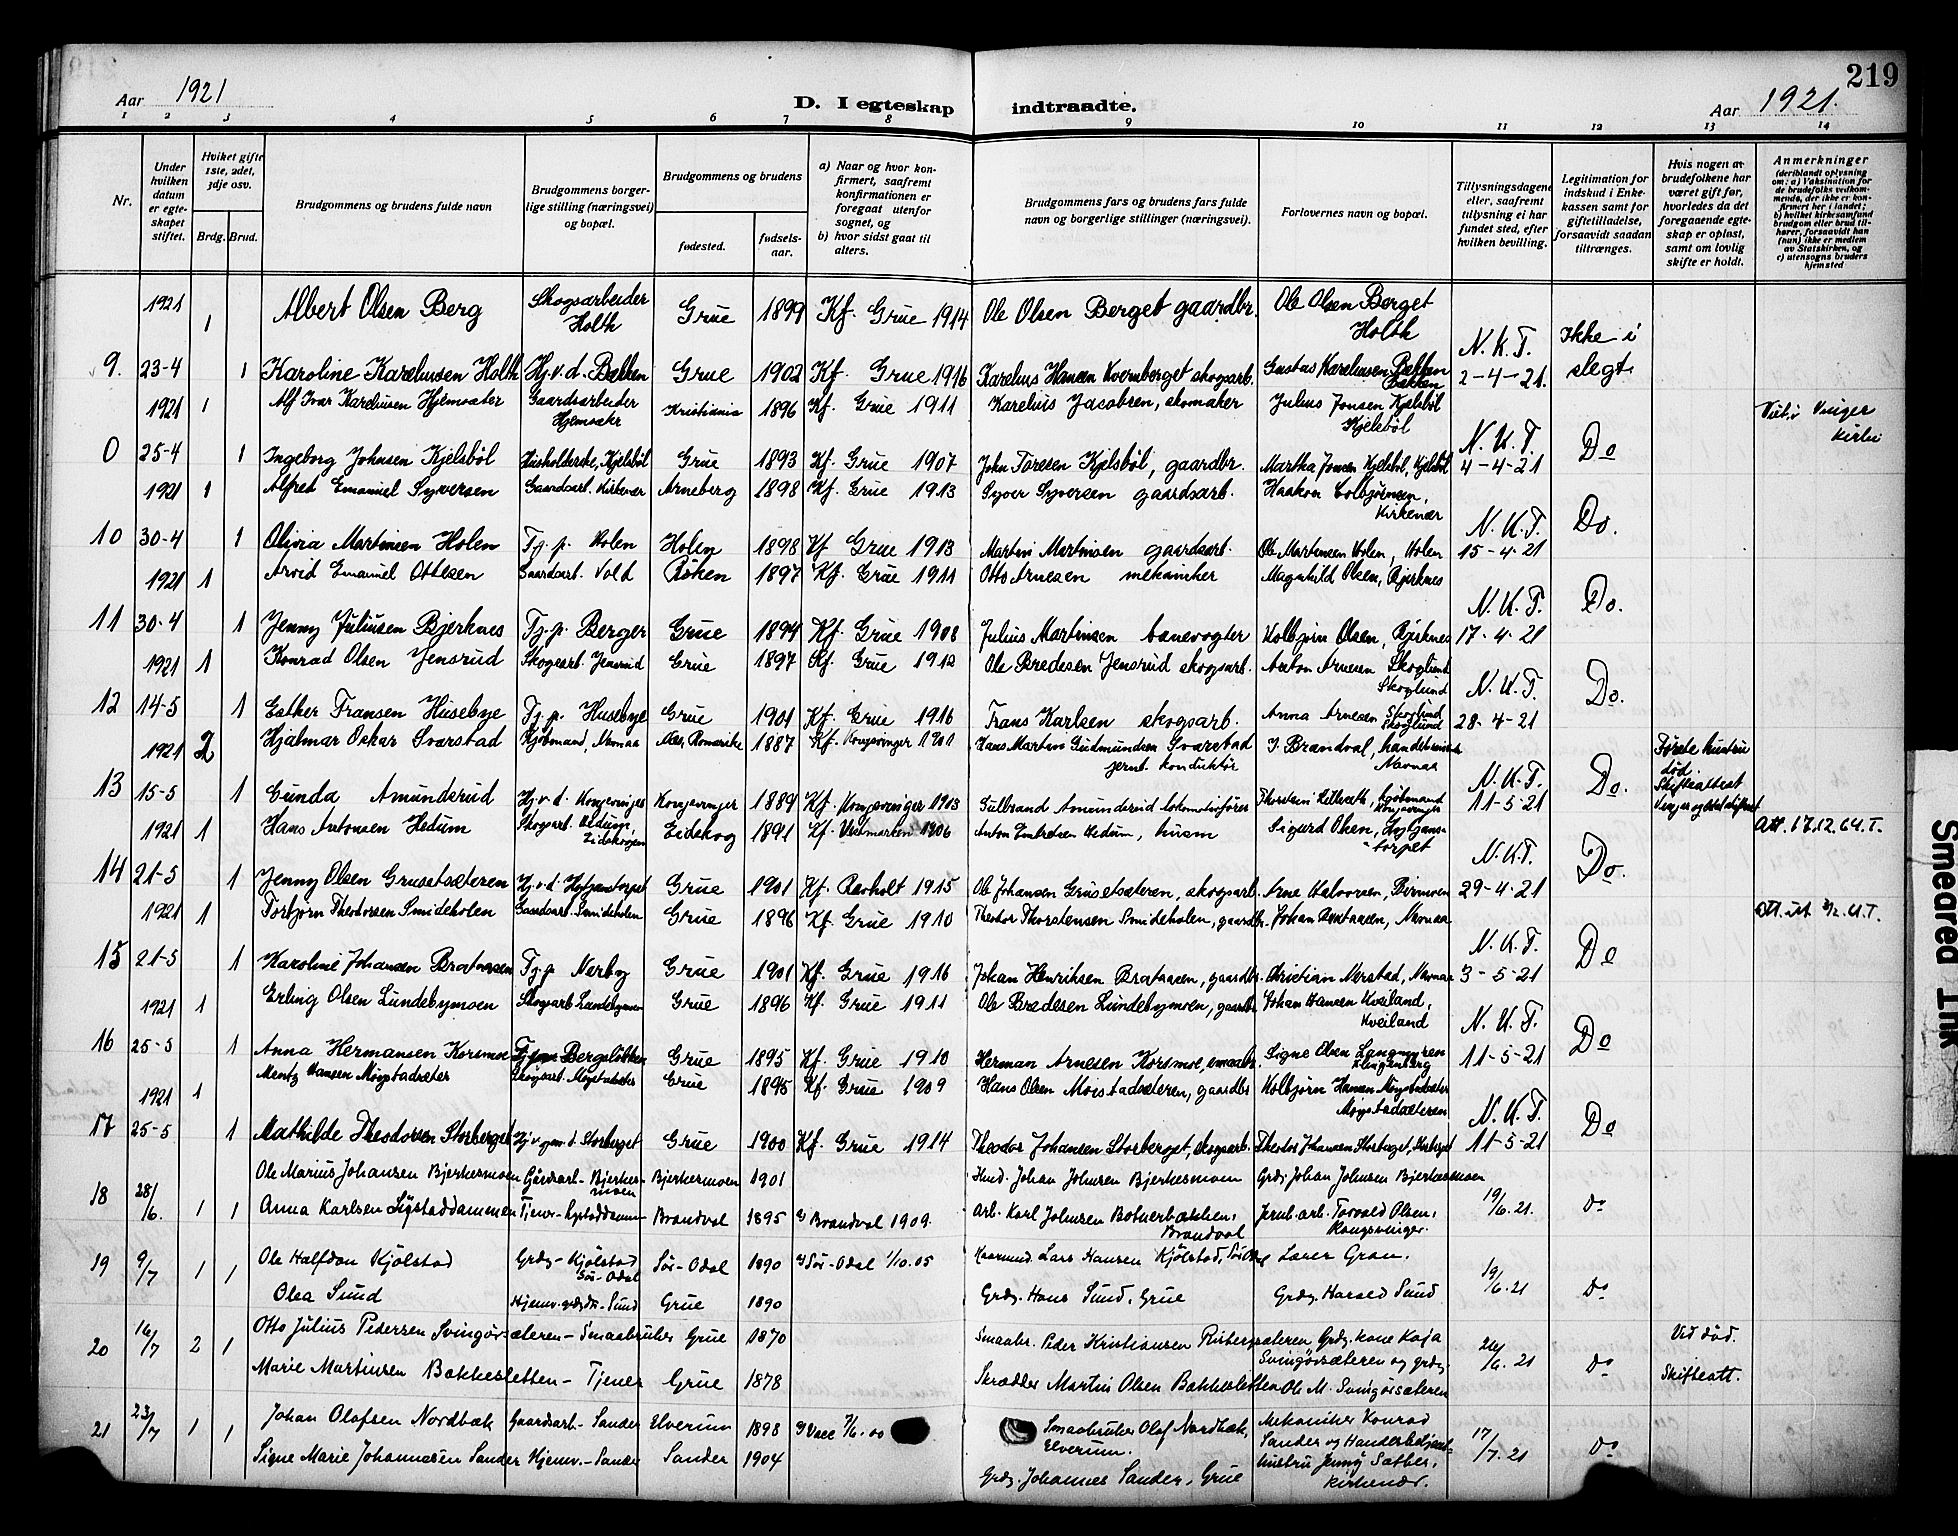 219
Aar 1921
D. I egteskap indtraadte.
Aar 1921.
1 2 3 4 5 6 7 8 9 10 11 12 13 14
Nr.
Under hvilken datum er egteskapet stiftet.
Hvilket gifte 1ste, 2det, 3dje osv.
Brdg. Brud.
Brudgommens og brudens fulde navn
Brudgommens borgerlige stilling (næringsvei) og bopæl.
Brudgommens og brudens
fødested.
fødselsaar.
a) Naar og hvor konfirmert, saafremt konfirmationen er foregaat utenfor sognet, og
b) hvor sidst gaat til alters.
Brudgommens fars og brudens fars fulde navn og borgerlige stillinger (næringsvei).
Forlovernes navn og bopæl.
Tillysningsdagene eller, saafremt tillysning ei har fundet sted, efter hvilken bevilling.
Legitimation for indskud i Enkekassen samt for giftetilladelse, forsaavidt saadan tiltrænges.
Hvis nogen av brudefolkene har været gift før, hvorledes da det foregaaende egteskap er opløst, samt om lovlig skifte er holdt.
Anmerkninger
(deriblandt oplysning om: a) Vaksination for de brudefolks vedkommende, der ikke er konfirmert her i landet; b) hvilket kirkesamfund brudgom eller brud tilhører, forsaavidt han (hun) ikke er medlem av Statskirken, og c) utensogns bruders hjemsted
1921 1 Albert Olsen Berg Skogsarbeider Holth Grue 1899 Kf. Grue 1914 Ole Olsen Berget gaardbr. Ole Olsen Berget Holth N. K. T. Ikke i
9. 23-4 1 Karoline Kareliussen Holth Hj.v.d. Bekken Grue 1902 Kf. Grue 1916 Karelius Hansen Kvernberget skogsarb. Gustav Kareliussen Bekken Bekken 2-4-21. slegt.
1921 1 Alf Ivar Kareliusen Hjemsæter Gaardsarbeider Kristiania 1896 Kf. Grue 1911 Karelius Jacobsen, skomaker Julius Jonsen Kjelsböl Kjelsböl N. K. T. Viet i Vinger kirke
0 25-4 1 Ingeborg Johnsen Kjelsböl Husholderske, Kjelsböl Grue 1893 Kf. Grue 1907 John Toresen Kjelsböl, gaardbr. Martha Jonsen Kjelsböl, Kjelsböl 4-4-21 Do
1921 1 Alfred Emanuel Syversen Gaardsarb. Kirkenær Arneberg 1898 Kf. Grue 1913 Syver Syversen gaardsarb. Haakon Colbjørnsen, Kirkenær N. K. T. Do.
10 30-4 1 Olivia Martinsen Holen Tj. p. Holen Holen 1898 Kf Grue 1913 Martin Martinsen gaardsarb. Ole Martinsen Holen, Holen 15-4-21
1921 1 Arvid Emanuel Ottesen Gaardsarb. Vold Röken 1897 Kf. Grue 1911 Otto Arnesen mekaniker Magnhild Olsen, Bjerknes N. K. T. Do.
11 30-4 1 Jenny Juliusen Bjerknes Tj. p. Berger Grue 1894 Kf. Grue 1908 Julius Martinsen banevogter Kolbjørn Olsen, Bjerknes 17-4-21
1921 1 Konrad Olsen Jensrud Skogsarb. Jensrud Grue 1897 Kf. Grue 1912 Ole Bredesen Jensrud skogsarb. Anton Arnesen Skoglund Skoglund N. K. T. Do.
12 14-5 1 Esther Fransen Husebye Tj. p. Husebye Grue 1901 Kf. Grue 1916 Frans Karlsen skogsarb. Anna Arnesen Skoglund Skoglund 28-4-21
1921 2 Hjalmar Oskar Svarstad Kjøbmand, Namnaa Nes, Romerike 1887 Kf. Kongsvinger 1901 Hans Martin Gudmundsen Svarstad jernb. konduktör J. Brandval, Namnaa N. K. T. Do. Første hustru död. Skifteattest
13 15-5 1 Gunda Amundsrud Hj.v.d. Kongsvinger Kongsvinger 1889 Kf. Kongsvinger 1903 Gulbrand Amundsrud lokomotivfører Thorstein Kjøbmand Kongsvinger 11-5-21
1921 1 Hans Antonsen Hedum Skogsarb. Hedum, Eidskogen Eidskog 1891 Kf. Vestmarken 1906 Anton Embretsen Hedum, husm Sigurd Olsen, N. K. T. Att. 17.12.64. T.
14 21-5 1 Jenny Olsen Grusetsæteren Grue 1901 Kf. Revholt 1915 Ole Johansen Grusetsæteren, skogsarb. Arne Halvorsen, 29-4-21 Do.
1921 1 Torbjörn Theodorsen Smideholen Gaardsarb. Smideholen Grue 1896 Kf. Grue 1910 Theodor Thorstensen Smideholen, gaardbr. Johan Brataasen, Namnaa N. K. T. Do
15 21-5 1 Karoline Johansen Brataasen Tj. p. Nerby Grue 1901 Kf. Grue 1916 Johan Henriksen Brataasen, gaardbr. Christian Nerstad, Namnaa 3-5-21
1921 1 Erling Olsen Lundebymoen Skogsarb. Lundebymoen Grue 1896 Kf. Grue 1911 Ole Bredesen Lundebymoen, gaardbr. Johan Hansen Kveiland, Kveiland N. K. T. Do
16 25-5 1 Anna Hermansen Korsmoe Bergeløkken Grue 1895 Kf. Grue 1910 Herman Arnesen Korsmoe, Signe Olsen Langmyren 11-5-21
1921 1 Mentz Hansen Møystadsæter Skogsarb. Møystadsæter Grue 1895 Kf. Grue 1909 Hans Olsen Moistadsæteren, gaardbr. Kolbjørn Hansen Møystadsæter Møystadsæteren N. K. T. Do
17 25-5 1 Mathilde Theodorsen Storberget Storberget Grue 1900 Kf. Grue 1914 Theodor Johansen Storberget, skogsarb. Theodor Johansen Storberget, Storberget 11-5-21
18 28/6. 1 1 Ole Marius Johansen Bjerkesmoen Gårdsarb- Bjerkesmoen Bjerkesmoen 1901 Johan Johnsen Bjerkesmoen Grdg. Johan Johnsen Bjerkesmoen 19/6. 21. Do
Anna Karlsen Sigstaddammen Brandval 1895 Brandval 1909. arb. Karl Johnsen Botnerbakken, Brandval Jernb. arb. Torvald Olsen, Kongsvinger.
19 9/7 1 1 Ole Halfdan Kjölstad Grdg- Kjölstad Sör-Odal Sör-Odal 1890 Sör-Odal 1/10.05 Lars Hansen Kjölstad, Lærer Gran. 19/6. 21 Do
Olea Sund Sund Grue 1890 Grdg. Hans Sund, Grue Grdg Harald Sund
20 16/7 2 1 Otto Julius Pedersen Svingörsæteren- Smaabruker Grue 1870 Smaabr. Peder Kristiansen Risbergsæteren Grdg. kone Kaja Svingörsæteren og grdg. 26/6. 21 Do Ved död. Skifteatt.
Marie Martinsen Bakkesletten- Tjener Grue 1878 Skrædder Martin Olsen Bakkesletten Ole M. Svingörsæteren
21 23/7 1 1 Johan Olafsen Nordbæk Gaardsarb- Sander Elverum 1898 Smaabruker Olaf Nordbæk, Elverum. Mekaniker Konrad Sander og Handelsbetjent- 17/7. 21 Do
Signe Marie Johannesen Sander Hjemv.- Sander Sander 1904 Grdg. Johannes Sander, Grue hustru Jenny Sæther, Kirkenær.
Smeared Ink